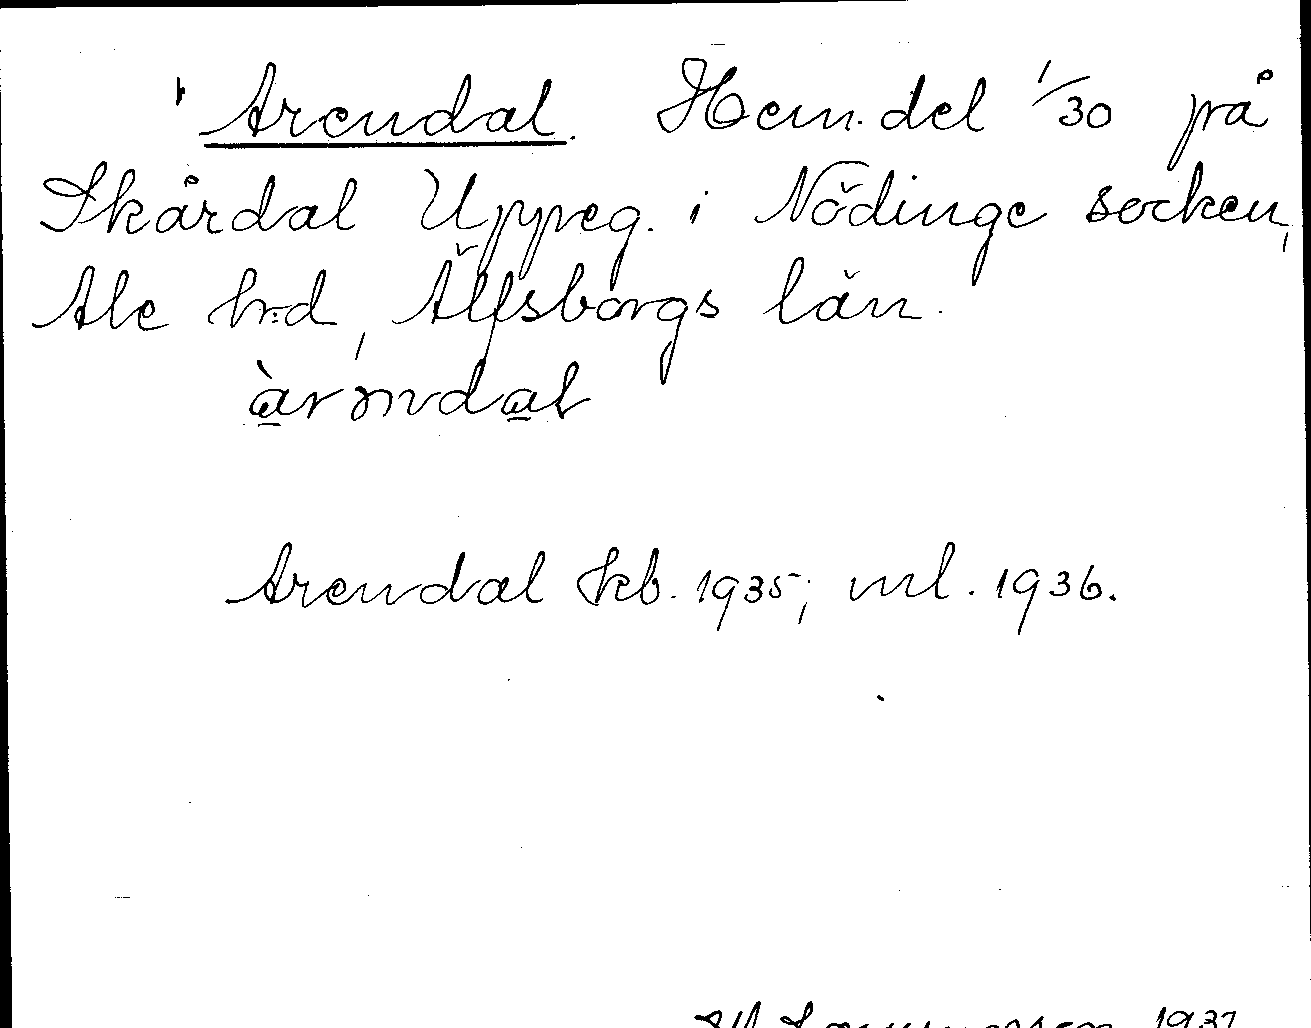 Arendal. Hem. del 1/30 på
Skårdal Uppeg. i Nödinge socken,
Ale h:d, Älfsborgs län.
àrəndal
Arendal kb. 1935; ml. 1936.
1937